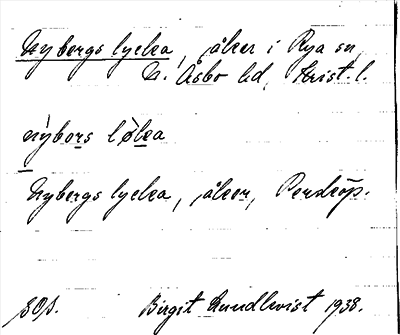 Nybergs lycka, åker i Rya sn,
N. Åsbo hd, Krist. l.
nỳbors lø̀ka
Nybergs lycka, åker, Perstorp.
Birgit Lundkvist 1938.